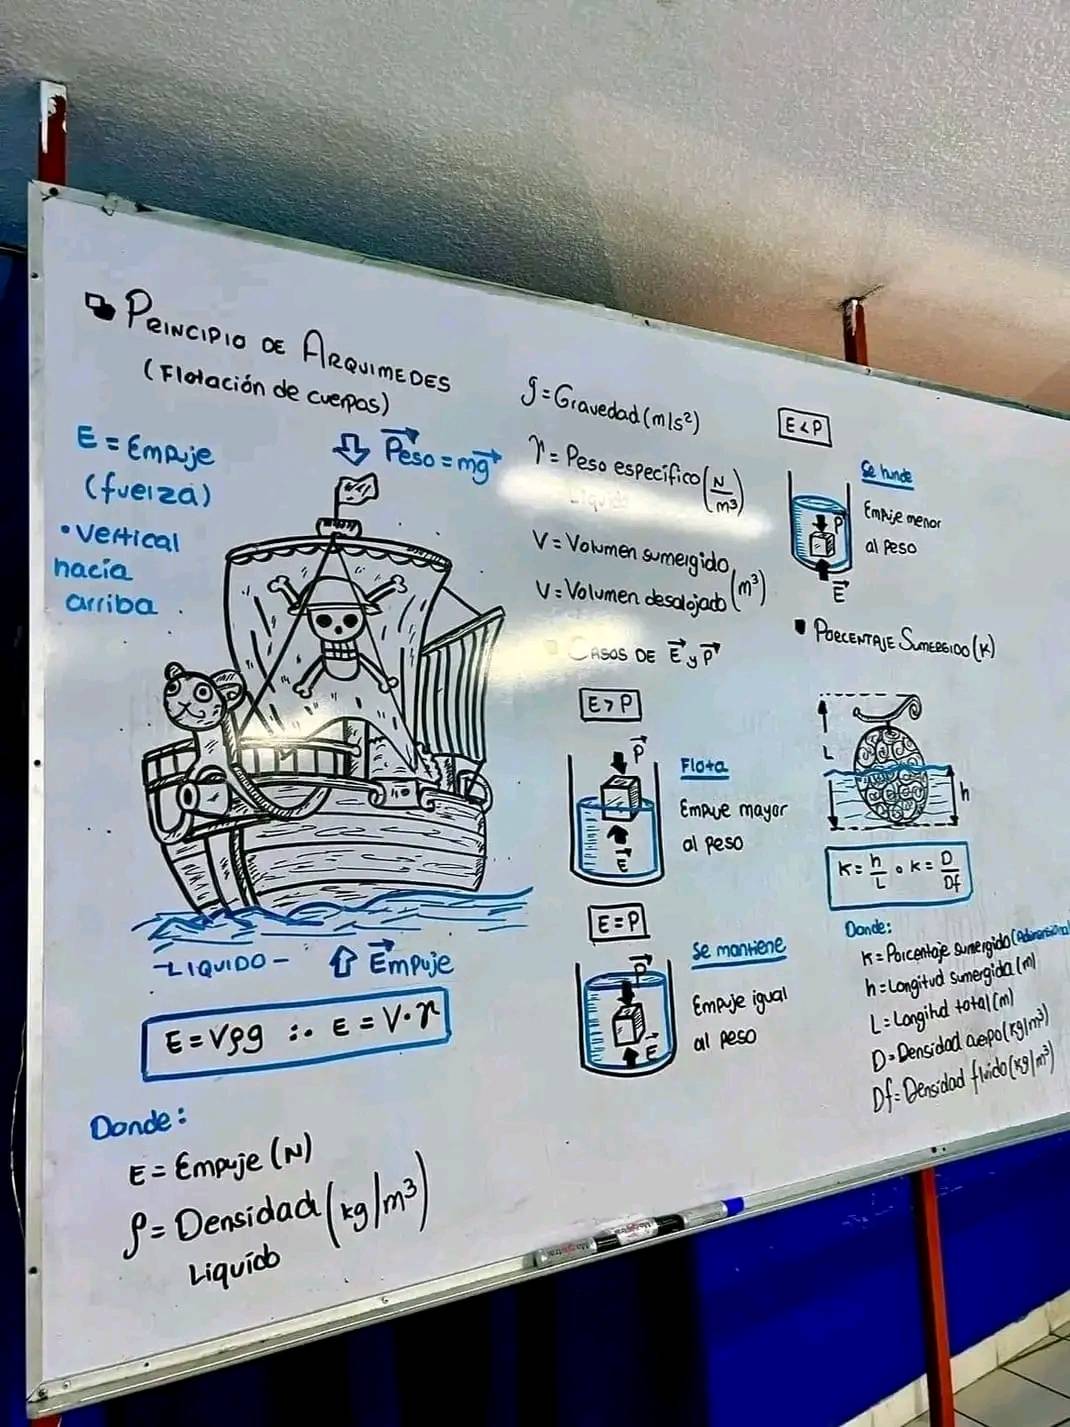 PRINCIPIO DE ARQUIMEDES
(Flotación de cuerpos)
E = Empuje
(fuerza)
• Vertical
hacia
arriba
Peso = mg
-LIQUIDO-
Empuje
E = Vρg ∴ E = V·γ
Donde:
E = Empuje (N)
ρ = Densidad (kg/m³)
Liquido
g = Gravedad (m/s²)
γ = Peso específico (N/m³)
Liquido
V = Volumen sumergido
V = Volumen desalojado (m³)
CASOS DE E y P
E > P
P
E
Flota
Empuje mayor
al peso
E = P
P
E
Se mantiene
Empuje igual
al peso
E < P
P
E
Se hunde
Empuje menor
al peso
PORCENTAJE SUMERGIDO (K)
L
h
K = h/L o K = D/Df
Donde:
K = Porcentaje sumergido (Adimensional
h = Longitud sumergida (m)
L = Longitud total (m)
D = Densidad cuerpo (kg/m³)
Df = Densidad fluido (kg/m³)